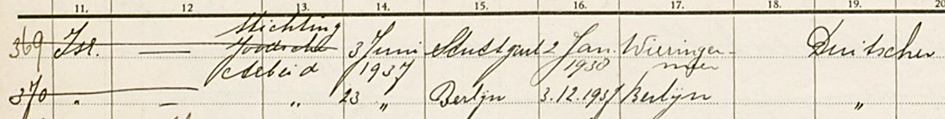 11. 12 13. 14. 15. 16. 17. 19. 20
Stichting
369 Isr. — Joodsche 3 Juni Stuttgart 2 Jan. Wieringer- Duitscher
Arbeid 1937 1938 meer
370 „ — „ 23 „ Berlijn 3.12.1937 Berlijn „